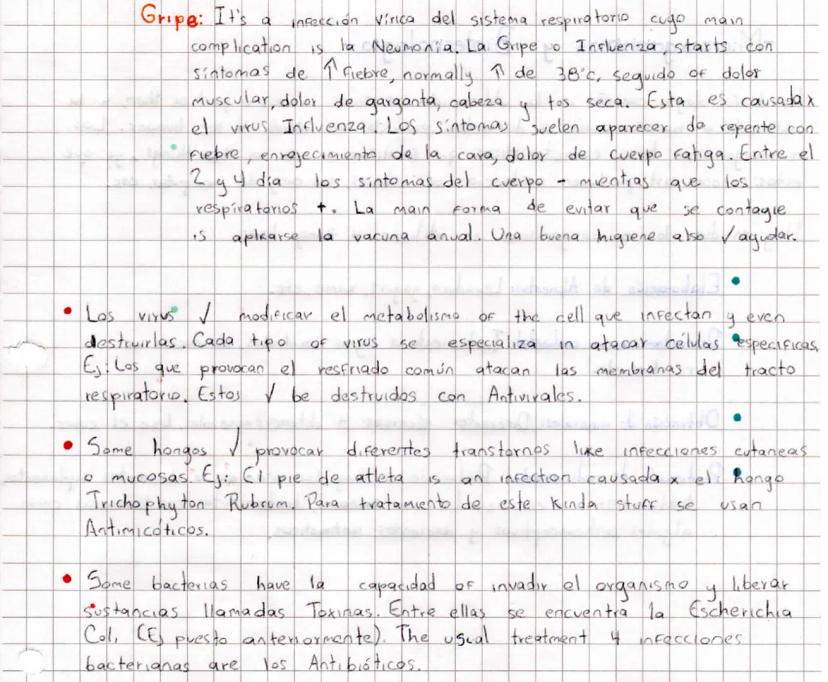 Gripe: It's a infección vírica del sistema respiratorio cuyo main
complication is la Neumonía. La Gripe o Influenza starts con
síntomas de ↑ fiebre, normally ↑ de 38°c, seguido of dolor
muscular, dolor de garganta, cabeza y tos seca. Esta es causada x
el virus Influenza. Los síntomas suelen aparecer de repente con
fiebre, enrojecimiento de la cara, dolor de cuerpo fatiga. Entre el
2 y 4 día los síntomas del cuerpo - mientras que los
respiratorios +. La main forma de evitar que se contagie
is aplicarse la vacuna anual. Una buena higiene also √ ayudar.
• Los virus √ modificar el metabolismo of the cell que infectan y even
destruirlas. Cada tipo of virus se especializa in atacar células específicas.
Ej: Los que provocan el resfriado común atacan las membranas del tracto
respiratorio. Estos √ be destruidos con Antivirales.
• Some hongos √ provocar diferentes transtornos like infecciones cutaneas
o mucosas. Ej: El pie de atleta is an infection causada x el hongo
Trichophyton Rubrum. Para tratamiento de este kinda stuff se usan
Antimicóticos.
• Some bacterias have la capacidad of invadir el organismo y liberar
sustancias llamadas Toxinas. Entre ellas se encuentra la Escherichia
Coli (Ej puesto anteriormente). The usual treatment 4 infecciones
bacterianas are los Antibióticos.